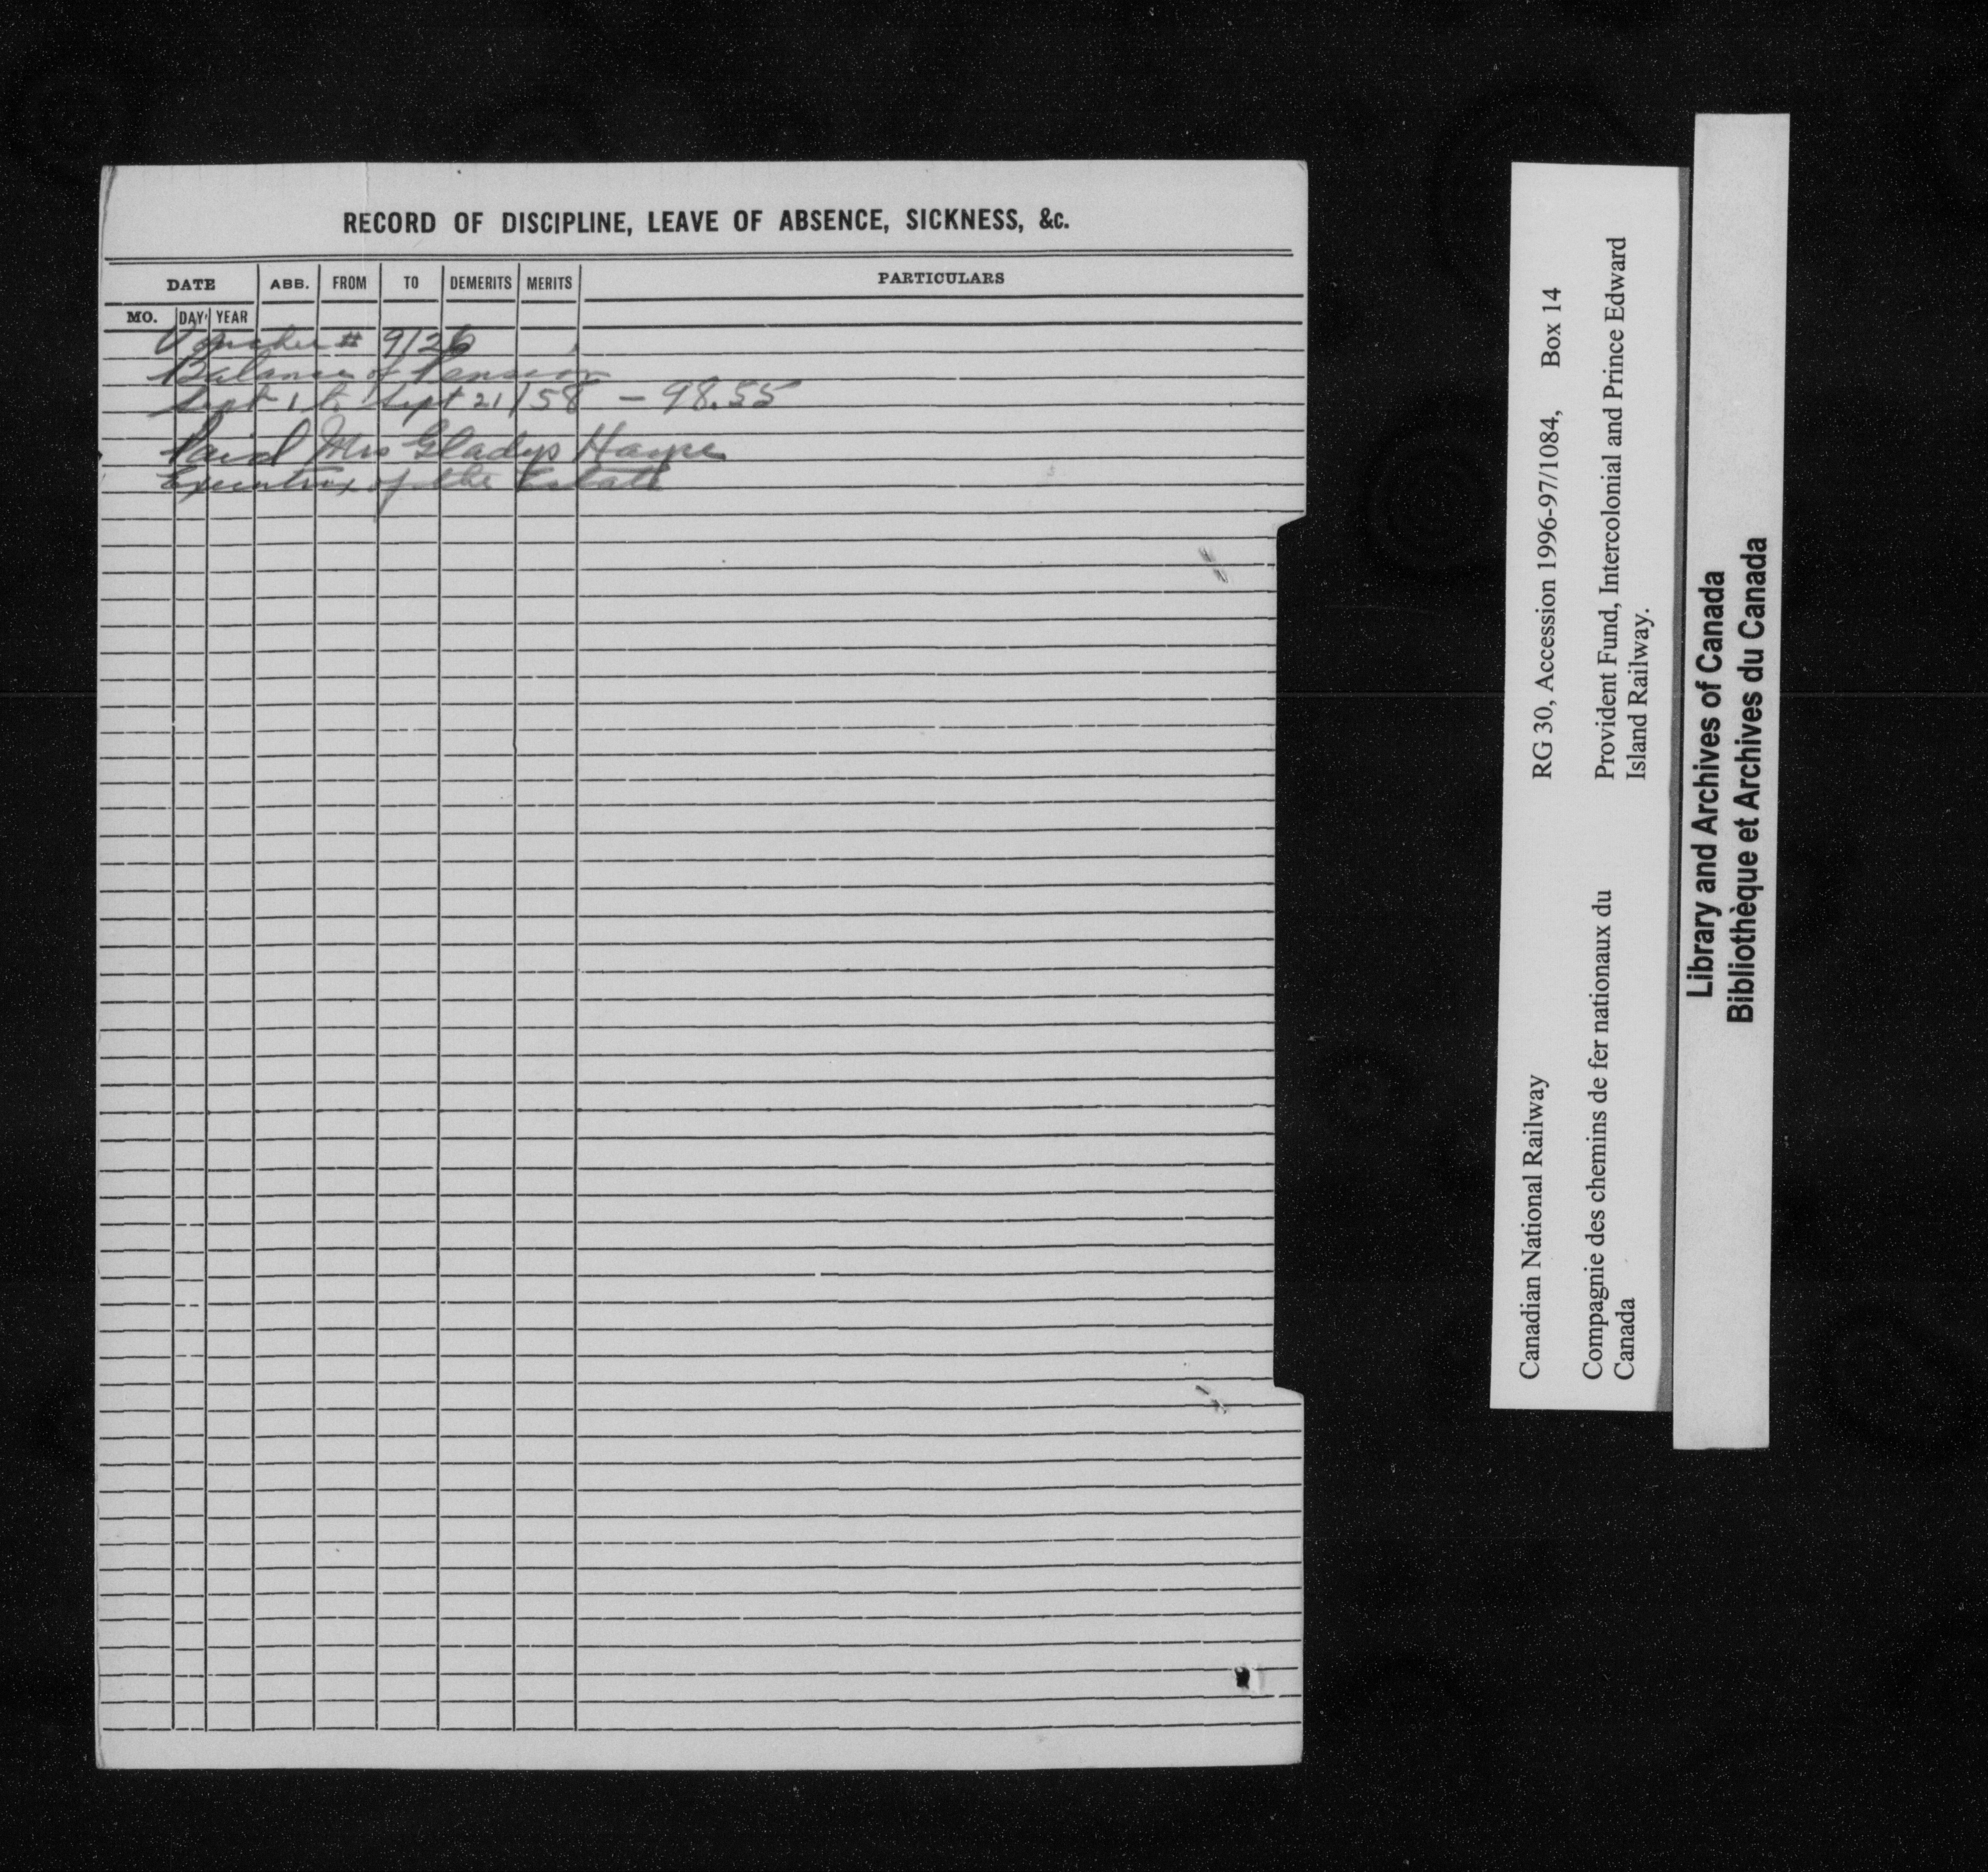 RECORD OF DISCIPLINE, LEAVE OF ABSENCE, SICKNESS, &c.
DATE ABB. FROM TO DEMERITS MERITS PARTICULARS
MO. DAY YEAR
Voucher # 9/26
Balance of Pension
Sept 1 to Sept 21/58 – 98.55
Paid Mrs Gladys
Executrix of the Estate
Canadian National Railway RG 30, Accession 1996-97/1084, Box 14
Compagnie des chemins de fer nationaux du Provident Fund, Intercolonial and Prince Edward
Canada Island Railway.
Library and Archives of Canada
Bibliothèque et Archives du Canada